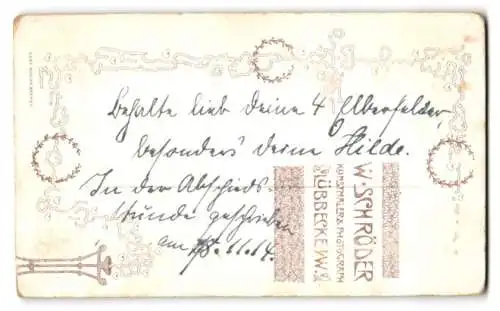 Behalte lieb deine 4 Elberfelder,
besonders deine Hilde.
In der Abschieds-
stunde geschrieben
am 18.11.14.
W. SCHRÖDER
KUNSTMALER & PHOTOGRAPH
LÜBBECKE i/W.